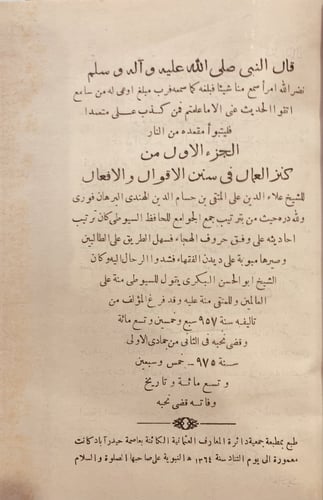 قال النبى صلى الله عليه و آله و سلم
نضر الله امرأ سمع منا شيئا فبلغه كما سمعه فرب مبلغ اوعى له من سامع
اتقوا الحديث عنى الا ما علمتم فمن كذب على متعمدا
فليتبوأ مقعده من النار
الجزء الاول من
كنز العمال فى سنن الاقوال و الافعال
للشيخ علاء الدين على المتقى بن حسام الدين الهندى البرهان فورى
ولله دره حيث من بترتيب جمع الجوامع للحافظ السيوطى كان ترتيب
احاديثه على وفق حروف الهجاء فسهل الطريق على الطالبين
وصيرها مبوبة على ديدن الفقهاء فشدوا الرحال اليه و كان
الشيخ ابو الحسن البكرى يقول للسيوطى منة على
العالمين و للمتقى منة عليه و قد فرغ المؤلف من
تاليفه سنة ٩٥٧ سبع و خمسين و تسع مائة
و قضى نحبه فى الثانى من جمادى الاولى
سنة ٩٧٥ خمس و سبعين
و تسع مائة و تاريخ
وفاته قضى نحبه
طبع بمطبعة جمعية دائرة المعارف العثمانية الكائنة بعاصمة حيدرآباد كانت
معمورة الى يوم التناد سنة ١٣٦٤ ه النبوية على صاحبها الصلوة و السلام